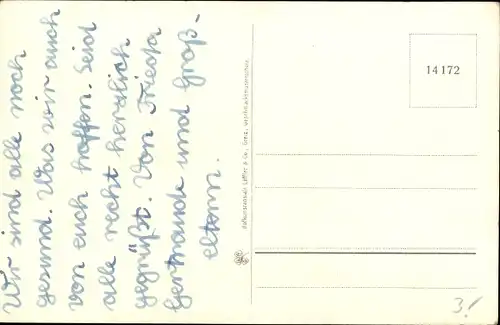 Wir sind alle noch
gesund. Was wir auch
von euch hoffen. Seid
alle recht herzlich
gegrüßt. Von Frieda
Gertraude und Groß-
eltern.
14172
3!